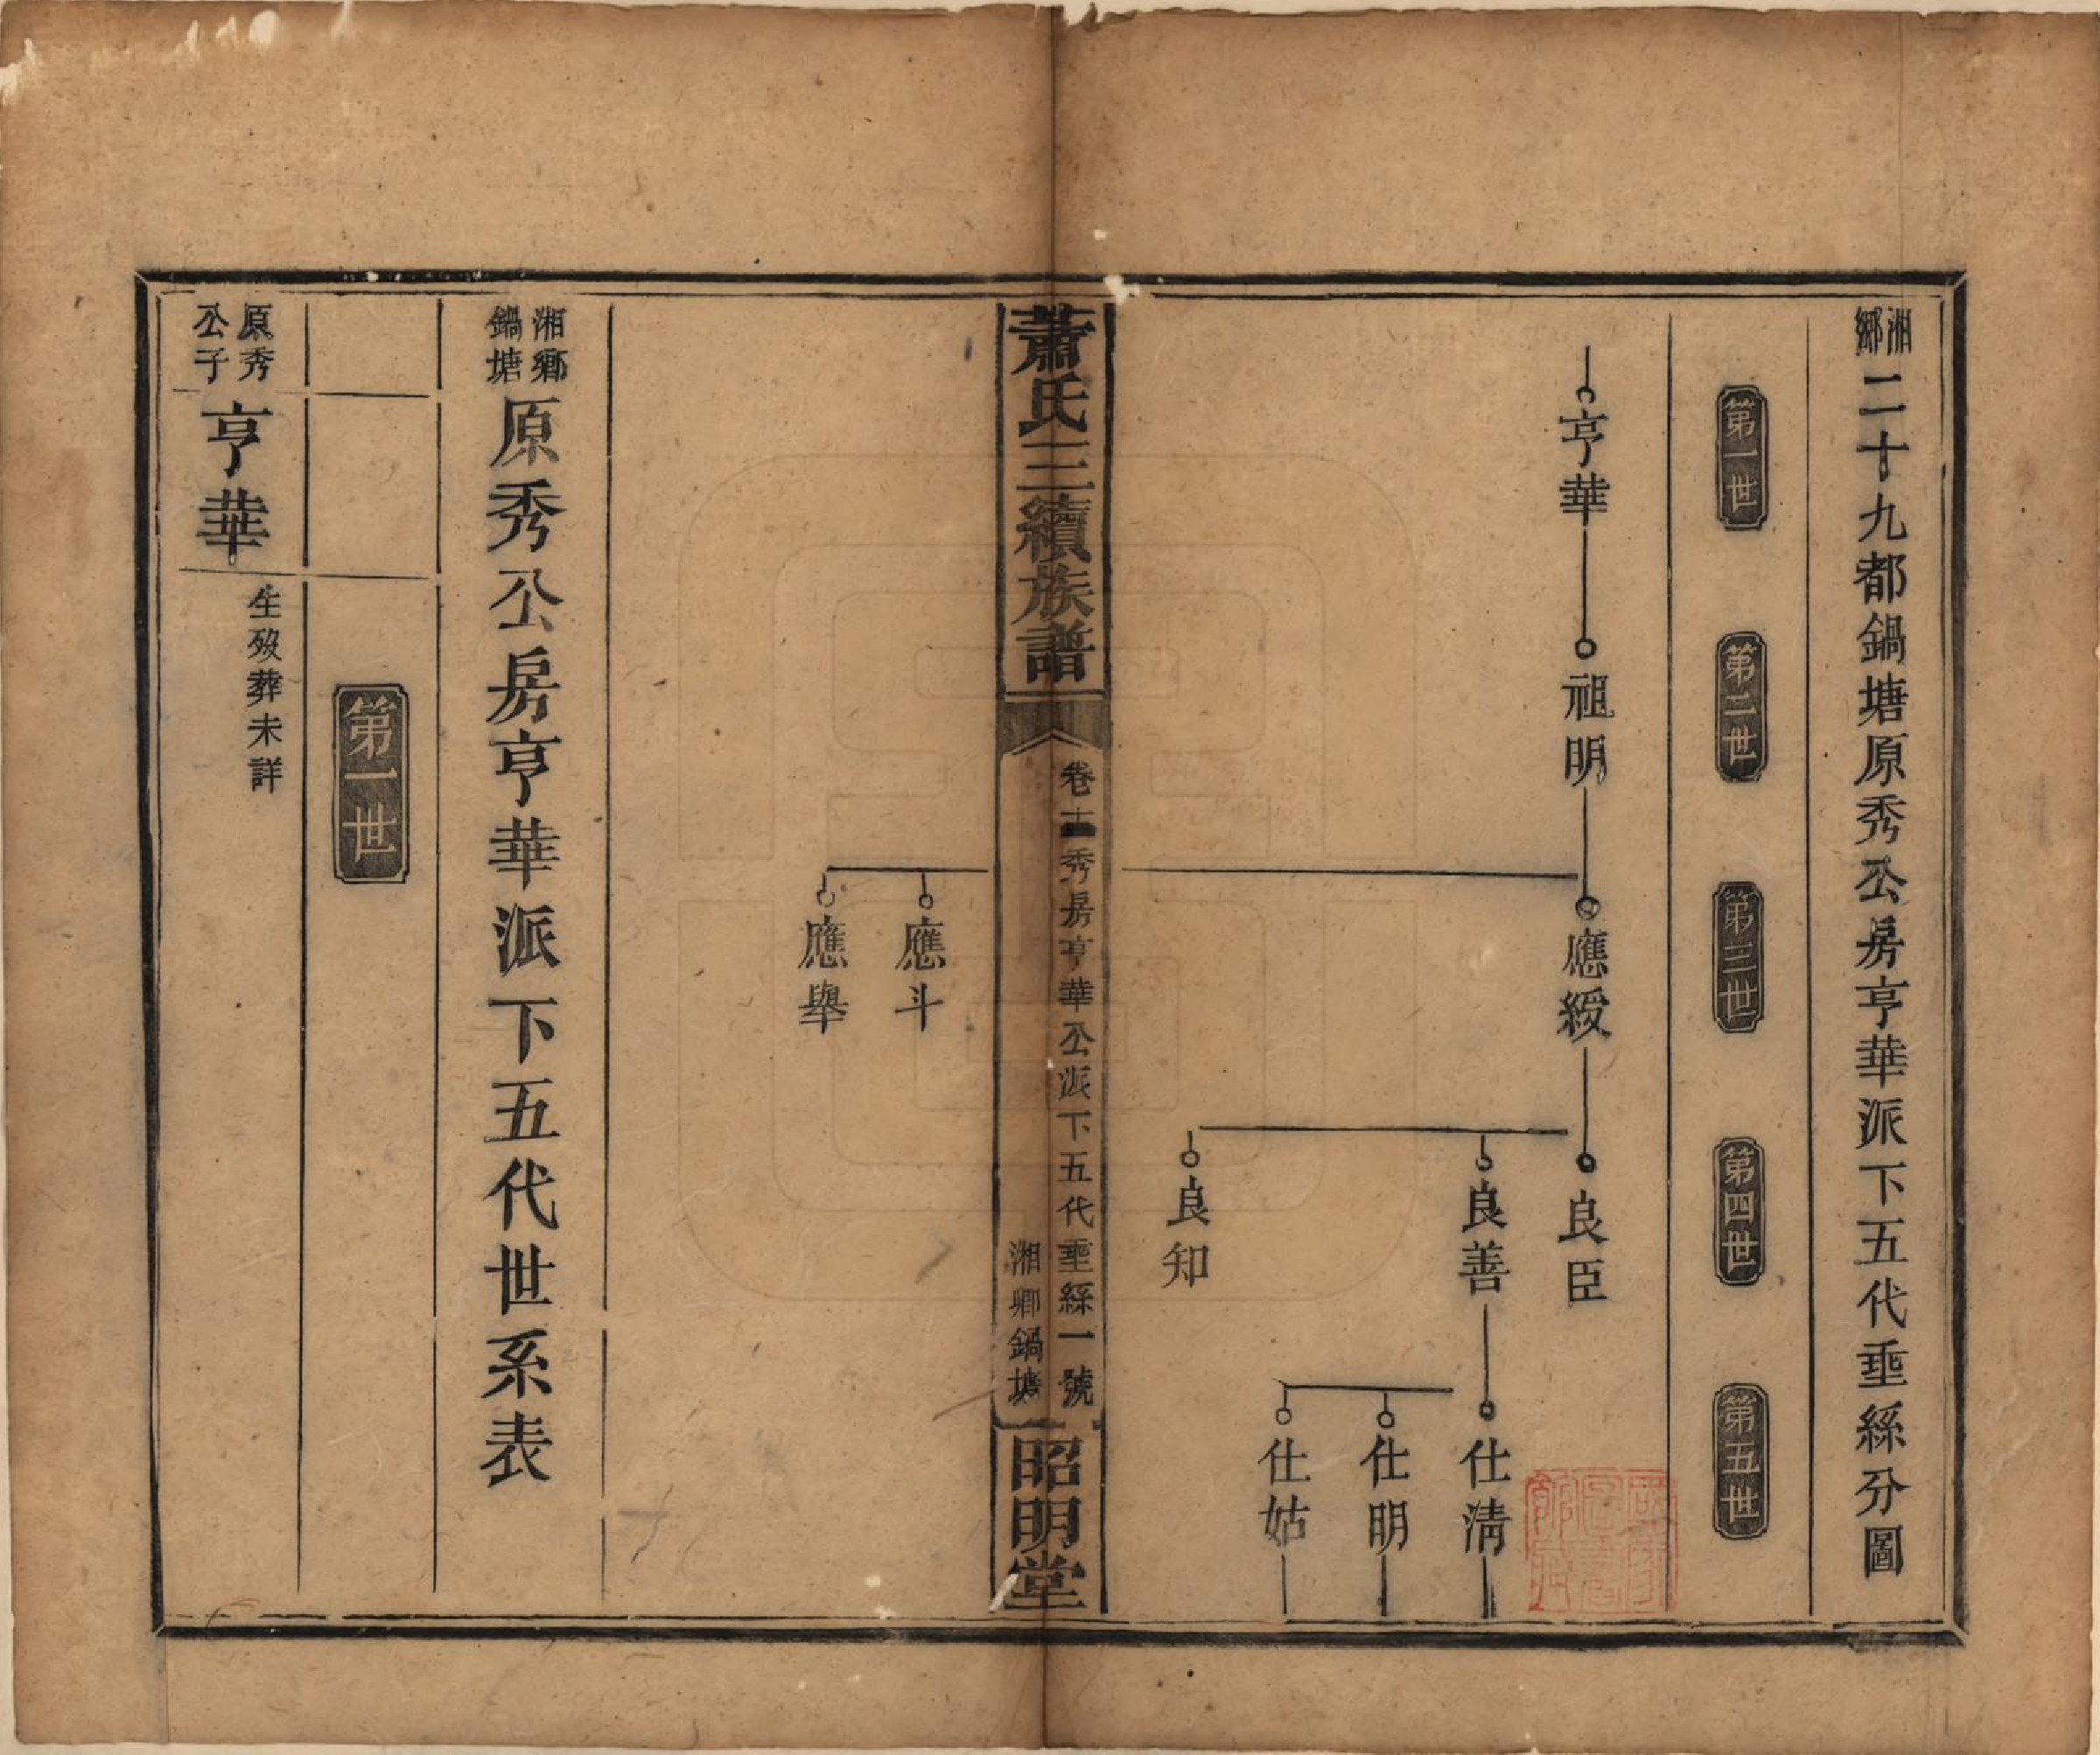 湘鄉二十九都鍋塘原秀公房亨華派下五代垂絲分圖
第一世
第二世
第三世
第四世
第五世
亨華
祖明
應綬
良臣
良善
仕清
仕明
仕姑
良知
蕭氏三續族譜
卷十一秀房亨華公派下五代垂絲一號
湘鄉鍋塘
昭明堂
應斗
應舉
湘鄉鍋塘原秀公房亨華派下五代世系表
第一世
原秀公子亨華
生歿葬未詳